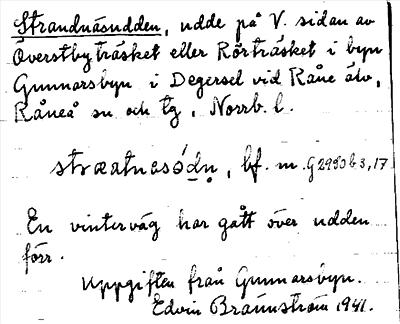 Strandnäsudden, udde på V. sidan av
Överstbyträsket eller Rörträsket i byn
Gunnarsbyn i Degersel vid Råne älv,
Råneå sn och tg, Norrb. l.
bf. m. G2950 b 3, 17
En vinterväg har gått över udden
förr.
Uppgiften från Gunnarsbyn.
Edvin Brännström 1941.